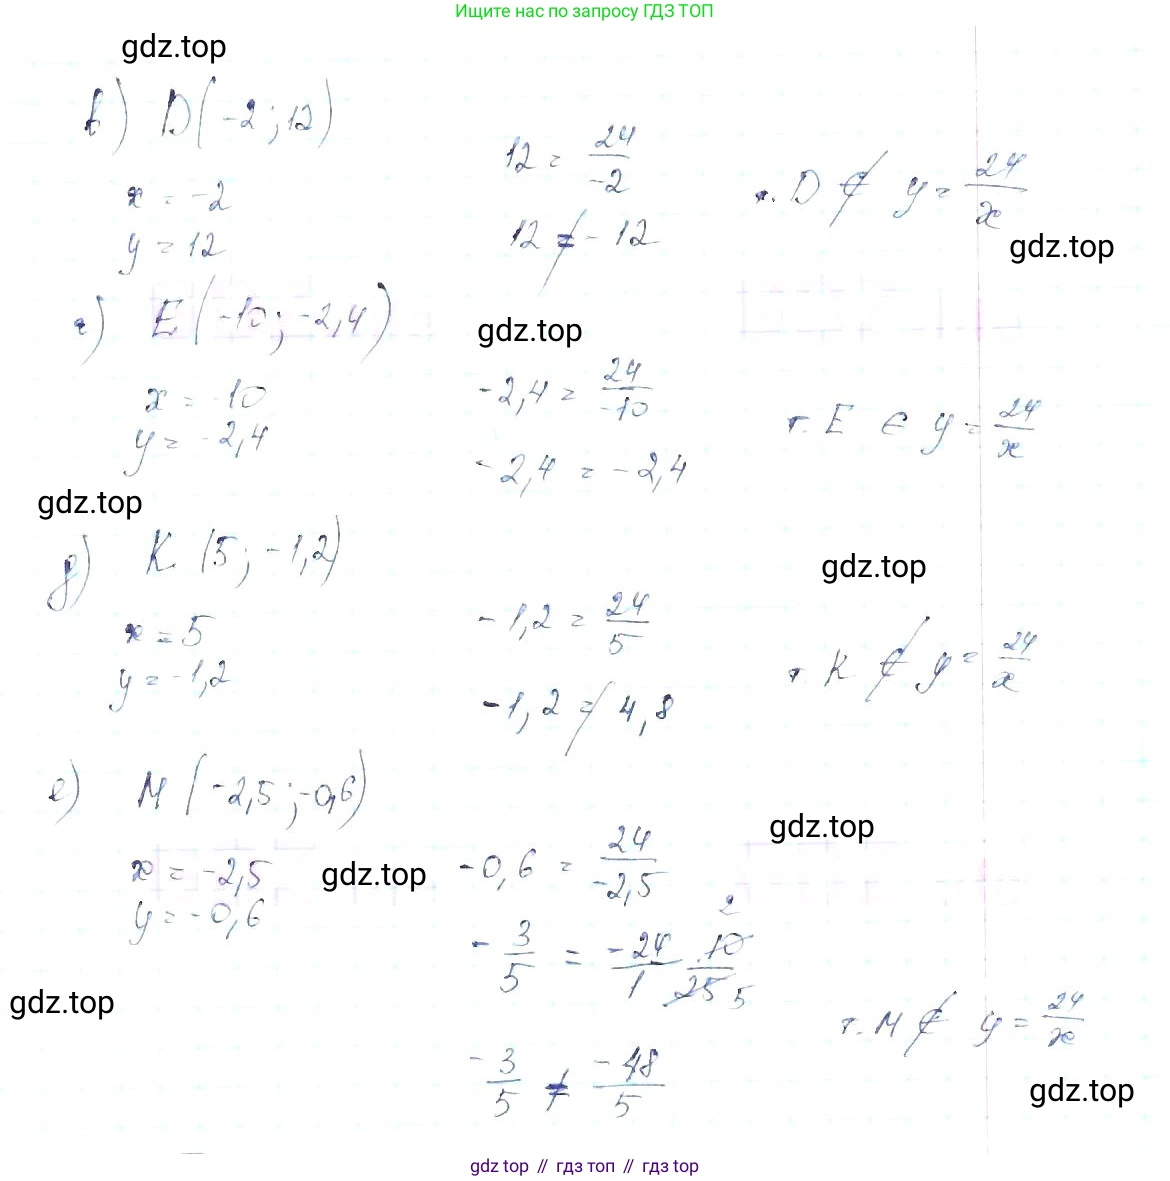 Ищите нас по запросу ГДЗ ТОП
gdz.top
в) D(-2; 12)
x = -2
y = 12
12 = 24/-2
12 ≠ -12
т. D ∉ y = 24/x
gdz.top
г) E(-10; -2,4)
gdz.top
x = -10
y = -2,4
-2,4 = 24/-10
-2,4 = -2,4
т. E ∈ y = 24/x
gdz.top
д) K (5; -1,2)
gdz.top
x = 5
y = -1,2
-1,2 = 24/5
-1,2 ≠ 4,8
т. K ∉ y = 24/x
е) M (-2,5; -0,6)
gdz.top
x = -2,5
y = -0,6
gdz.top
-0,6 = 24/-2,5
-3/5 = -24/1 · 10/25 2 5
gdz.top
-3/5 ≠ -48/5
т. M ∉ y = 24/x
gdz.top
gdz top // гдз топ // гдз top